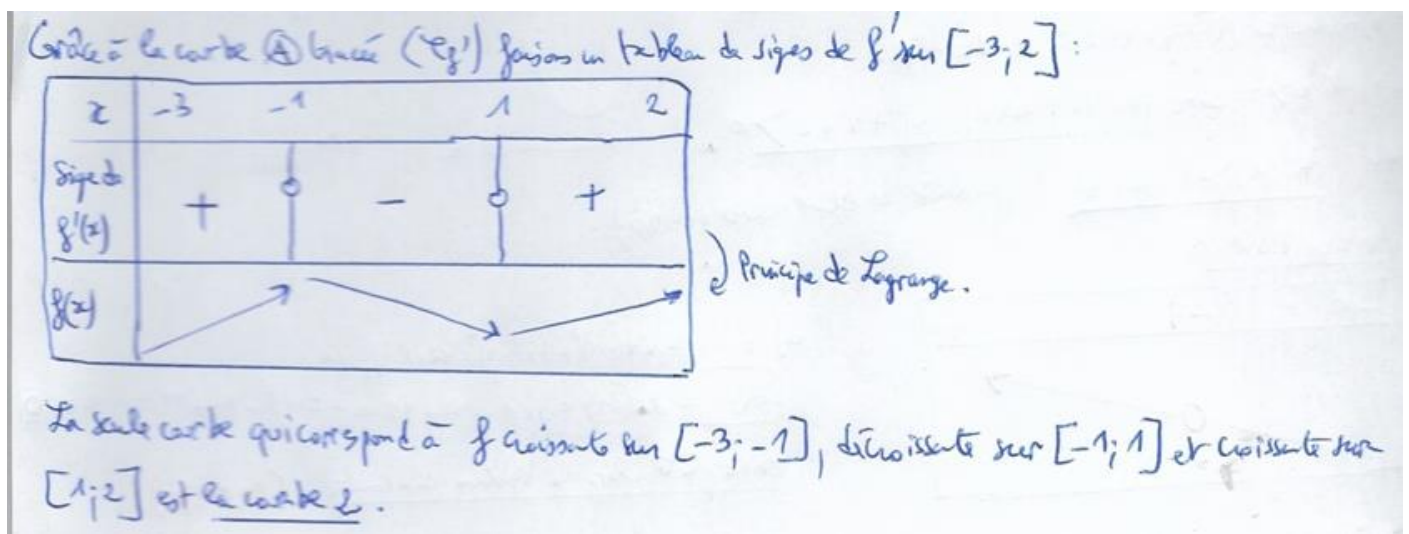 Grâce à la courbe Ⓐ tracée (𝒞f') faisons un tableau de signes de f' sur [-3; 2] :
x -3 -1 1 2
Signe de
f'(x) + 0 - 0 +
f(x)
Principe de Lagrange.
La seule courbe qui correspond à f croissante sur [-3; -1], décroissante sur [-1; 1] et croissante sur
[1; 2] est la courbe 2.